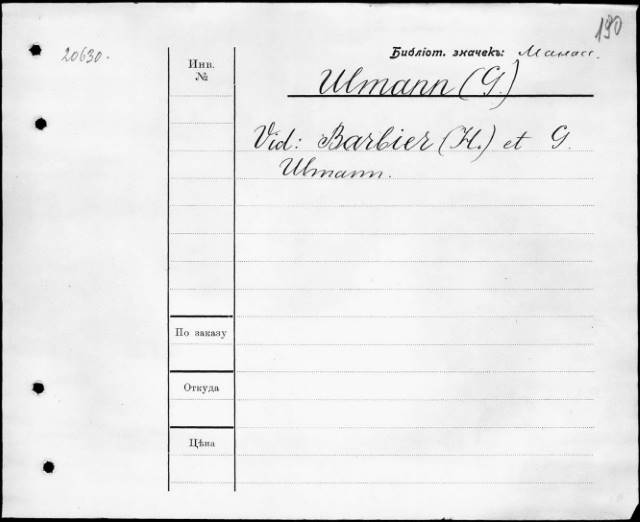 190
20630.
Библіот. значекъ:
Инв.
№
Ulmann (G.)
Vid: Barbier (H.) et G.
Ulmann.
По заказу
Откуда
Цѣна